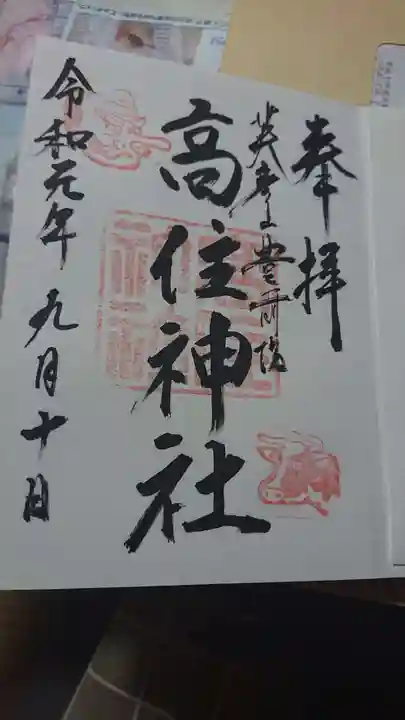 奉拝
英彦山豊前坊
高住神社
令和元年九月十日